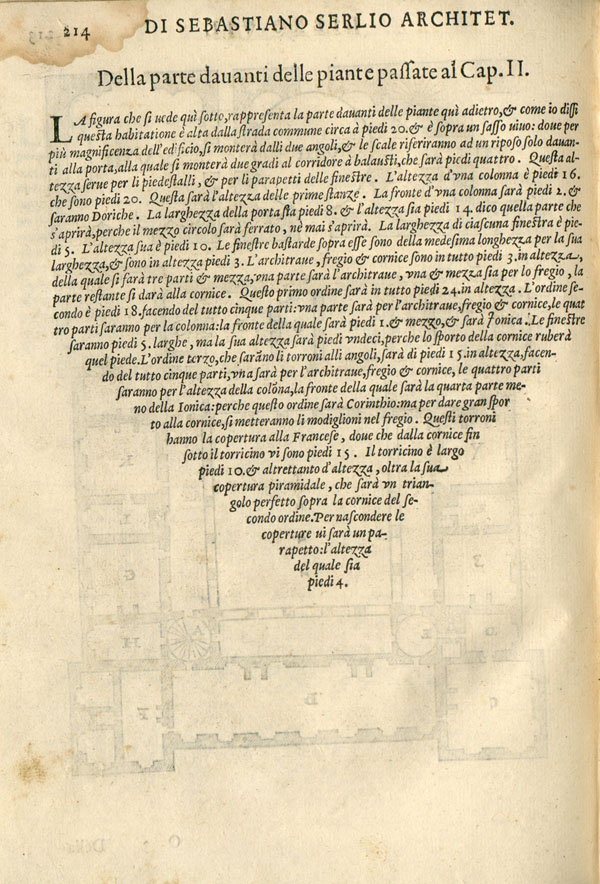 214 DI SEBASTIANO SERLIO ARCHITET.
Della parte dauanti delle piante paſſate al Cap. II.
LA figura che ſi uede quì ſotto, rappreſenta la parte dauanti delle piante quì adietro, & come io diſſi
queſta habitatione è alta dalla ſtrada commune circa à piedi 20. & è ſopra un ſaſſo uiuo: doue per
più magnificenza dell'edificio, ſi monterà dalli due angoli, & le ſcale riferiranno ad un ripoſo ſolo dauan-
ti alla porta, alla quale ſi monterà due gradi al corridore à balauſti, che ſarà piedi quattro. Queſta al-
tezza ſerue per li piedeſtalli, & per li parapetti delle fineſtre. L'altezza d'vna colonna è piedi 16.
che ſono piedi 20. Queſta ſarà l'altezza delle prime ſtanze. La fronte d'vna colonna ſarà piedi 2. &
ſaranno Doriche. La larghezza della porta ſia piedi 8. & l'altezza ſia piedi 14. dico quella parte che
s'aprirà, perche il mezzo circolo ſarà ſerrato, nè mai s'aprirà. La larghezza di ciaſcuna fineſtra è pie-
di 5. L'altezza ſua è piedi 10. Le fineſtre baſtarde ſopra eſſe ſono della medeſima longhezza per la ſua
larghezza, & ſono in altezza piedi 3. L'architraue, fregio & cornice ſono in tutto piedi 3. in altezza,
della quale ſi farà tre parti & mezza, vna parte ſarà l'architraue, vna & mezza ſia per lo fregio, la
parte reſtante ſi darà alla cornice. Queſto primo ordine ſarà in tutto piedi 24. in altezza. L'ordine ſe-
condo è piedi 18. facendo del tutto cinque parti: vna parte ſarà per l'architraue, fregio & cornice, le quat
tro parti ſaranno per la colonna: la fronte della quale ſarà piedi 1. & mezzo, & ſarà Ionica. Le fineſtre
ſaranno piedi 5. larghe, ma la ſua altezza ſarà piedi vndeci, perche lo ſporto della cornice ruberà
quel piede. L'ordine terzo, che ſarãno li torroni alli angoli, ſarà di piedi 15. in altezza, facen-
do del tutto cinque parti, vna ſarà per l'architraue, fregio & cornice, le quattro parti
ſaranno per l'altezza della colõna, la fronte della quale ſarà la quarta parte me-
no della Ionica: perche queſto ordine ſarà Corinthio: ma per dare gran ſpor
to alla cornice, ſi metteranno li modiglioni nel fregio. Queſti torroni
hanno la copertura alla Franceſe, doue che dalla cornice fin
ſotto il torricino vi ſono piedi 15. Il torricino è largo
piedi 10. & altrettanto d'altezza, oltra la ſua
copertura piramidale, che ſarà vn trian-
golo perfetto ſopra la cornice del ſe-
condo ordine. Per naſcondere le
coperture ui ſarà un pa-
rapetto: l'altezza
del quale ſia
piedi 4.